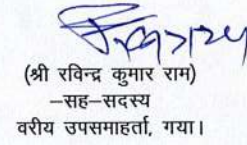 (श्री रविन्द्र कुमार राम)
–सह–सदस्य
वरीय उपसमाहर्ता, गया।